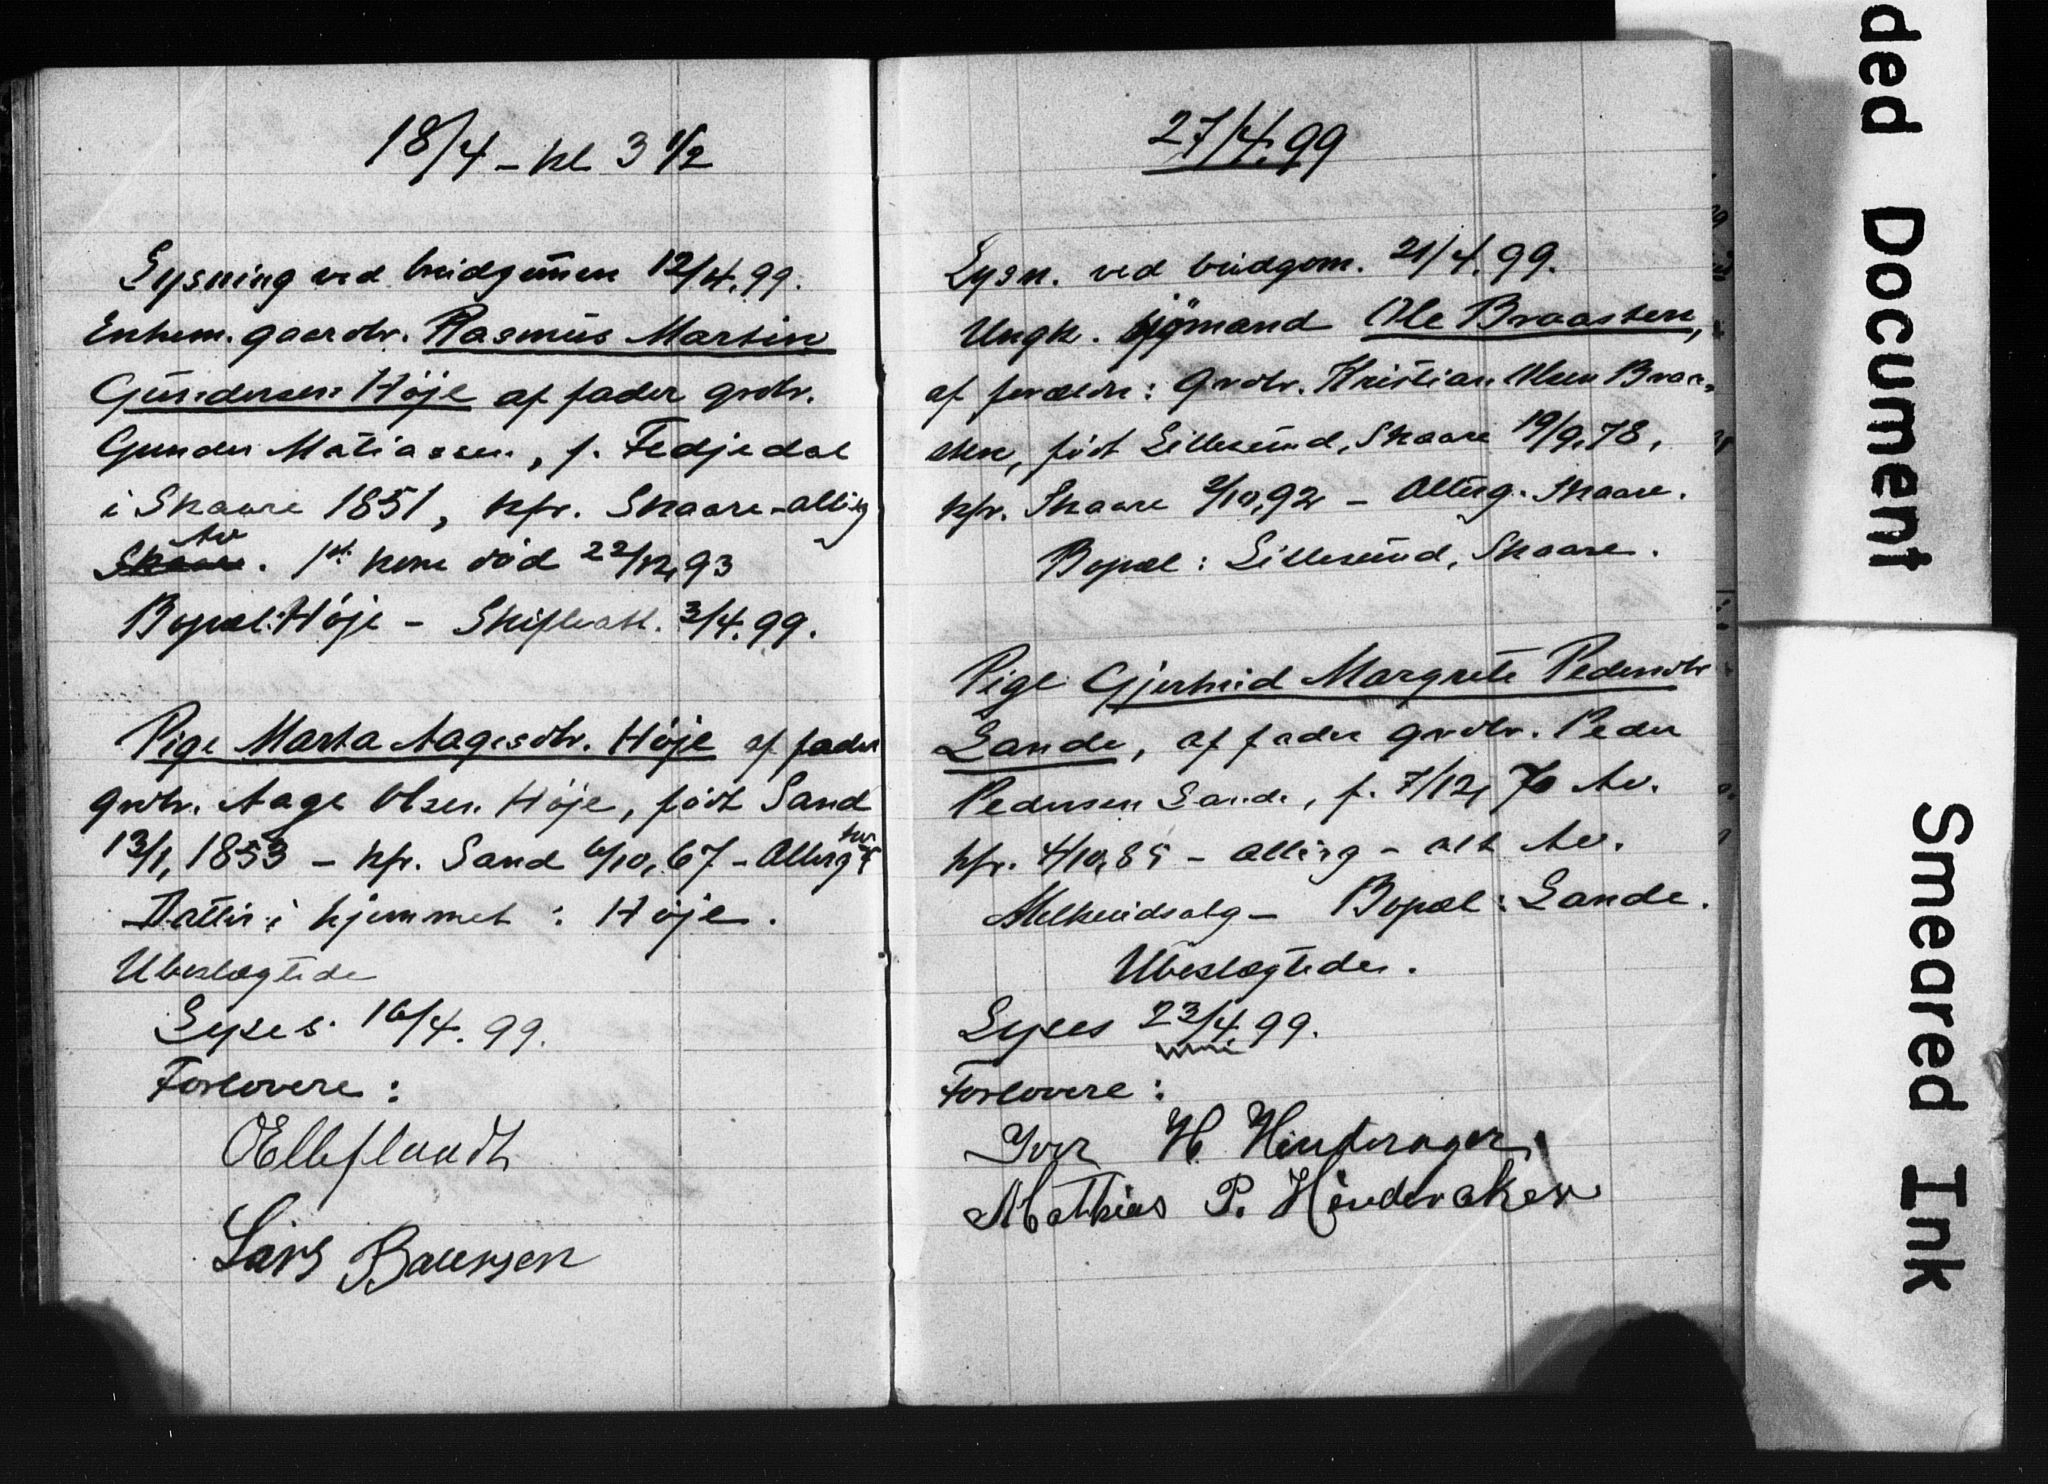 18/4 - kl 3 1/2
Lysning ved brudgummen 12/4. 99.
Enkem. gaardbr. Rasmus Martin
Gundersen Høje af fader grdbr.
Gunder Matiassen, f. Fedjedal
i Skaare 1851, kfr. Skaare - alting
Av
Skaare. 1st kone død 22/12, 93
Bopæl: Høje - Skifteatt. 3/4. 99.
Pige Marta Aagesdtr. Høje af fader
grdbr. Aage Olsen Høje, født Sand
13/1, 1853 - kfr. Sand 6/10, 67 - Alterg
Datter i hjemmet : Høje.
Ubeslægtede
Lyses 16/4. 99.
Forlovere :
Lars
27/4. 99
Lysn. ved brudgom. 21/4. 99.
Ungk. sjømand Ole Braasten,
af forældre : Grdbr. Kristian Olsen Braa-
sten, født Lillesund, Skaare 19/9, 78,
kfr. Skaare 2/10, 92 - Alterg. Skaare.
Bopæl : Lillesund, Skaare.
Pige Gjertrud Margrete Pedersdtr
Lande, af fader grdbr. Peder
Pedersen Lande, f. 7/12, 70 Av.
kfr. 4/10, 85 - alterg - alt Av.
Melkeudsalg - Bopæl : Lande.
Ubeslægtede.
Lyses 23/4. 99.
Forlovere :
Iver H. Hinderager
Mathias P. Hinderaker
ded Document
Smeared Ink